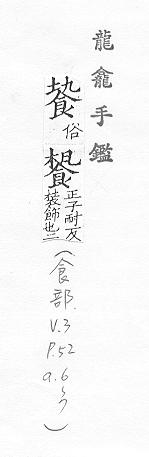 龍龕手鑑
俗
正子耐反
裝飾也二
(食部.
V.3
P.52
a.6